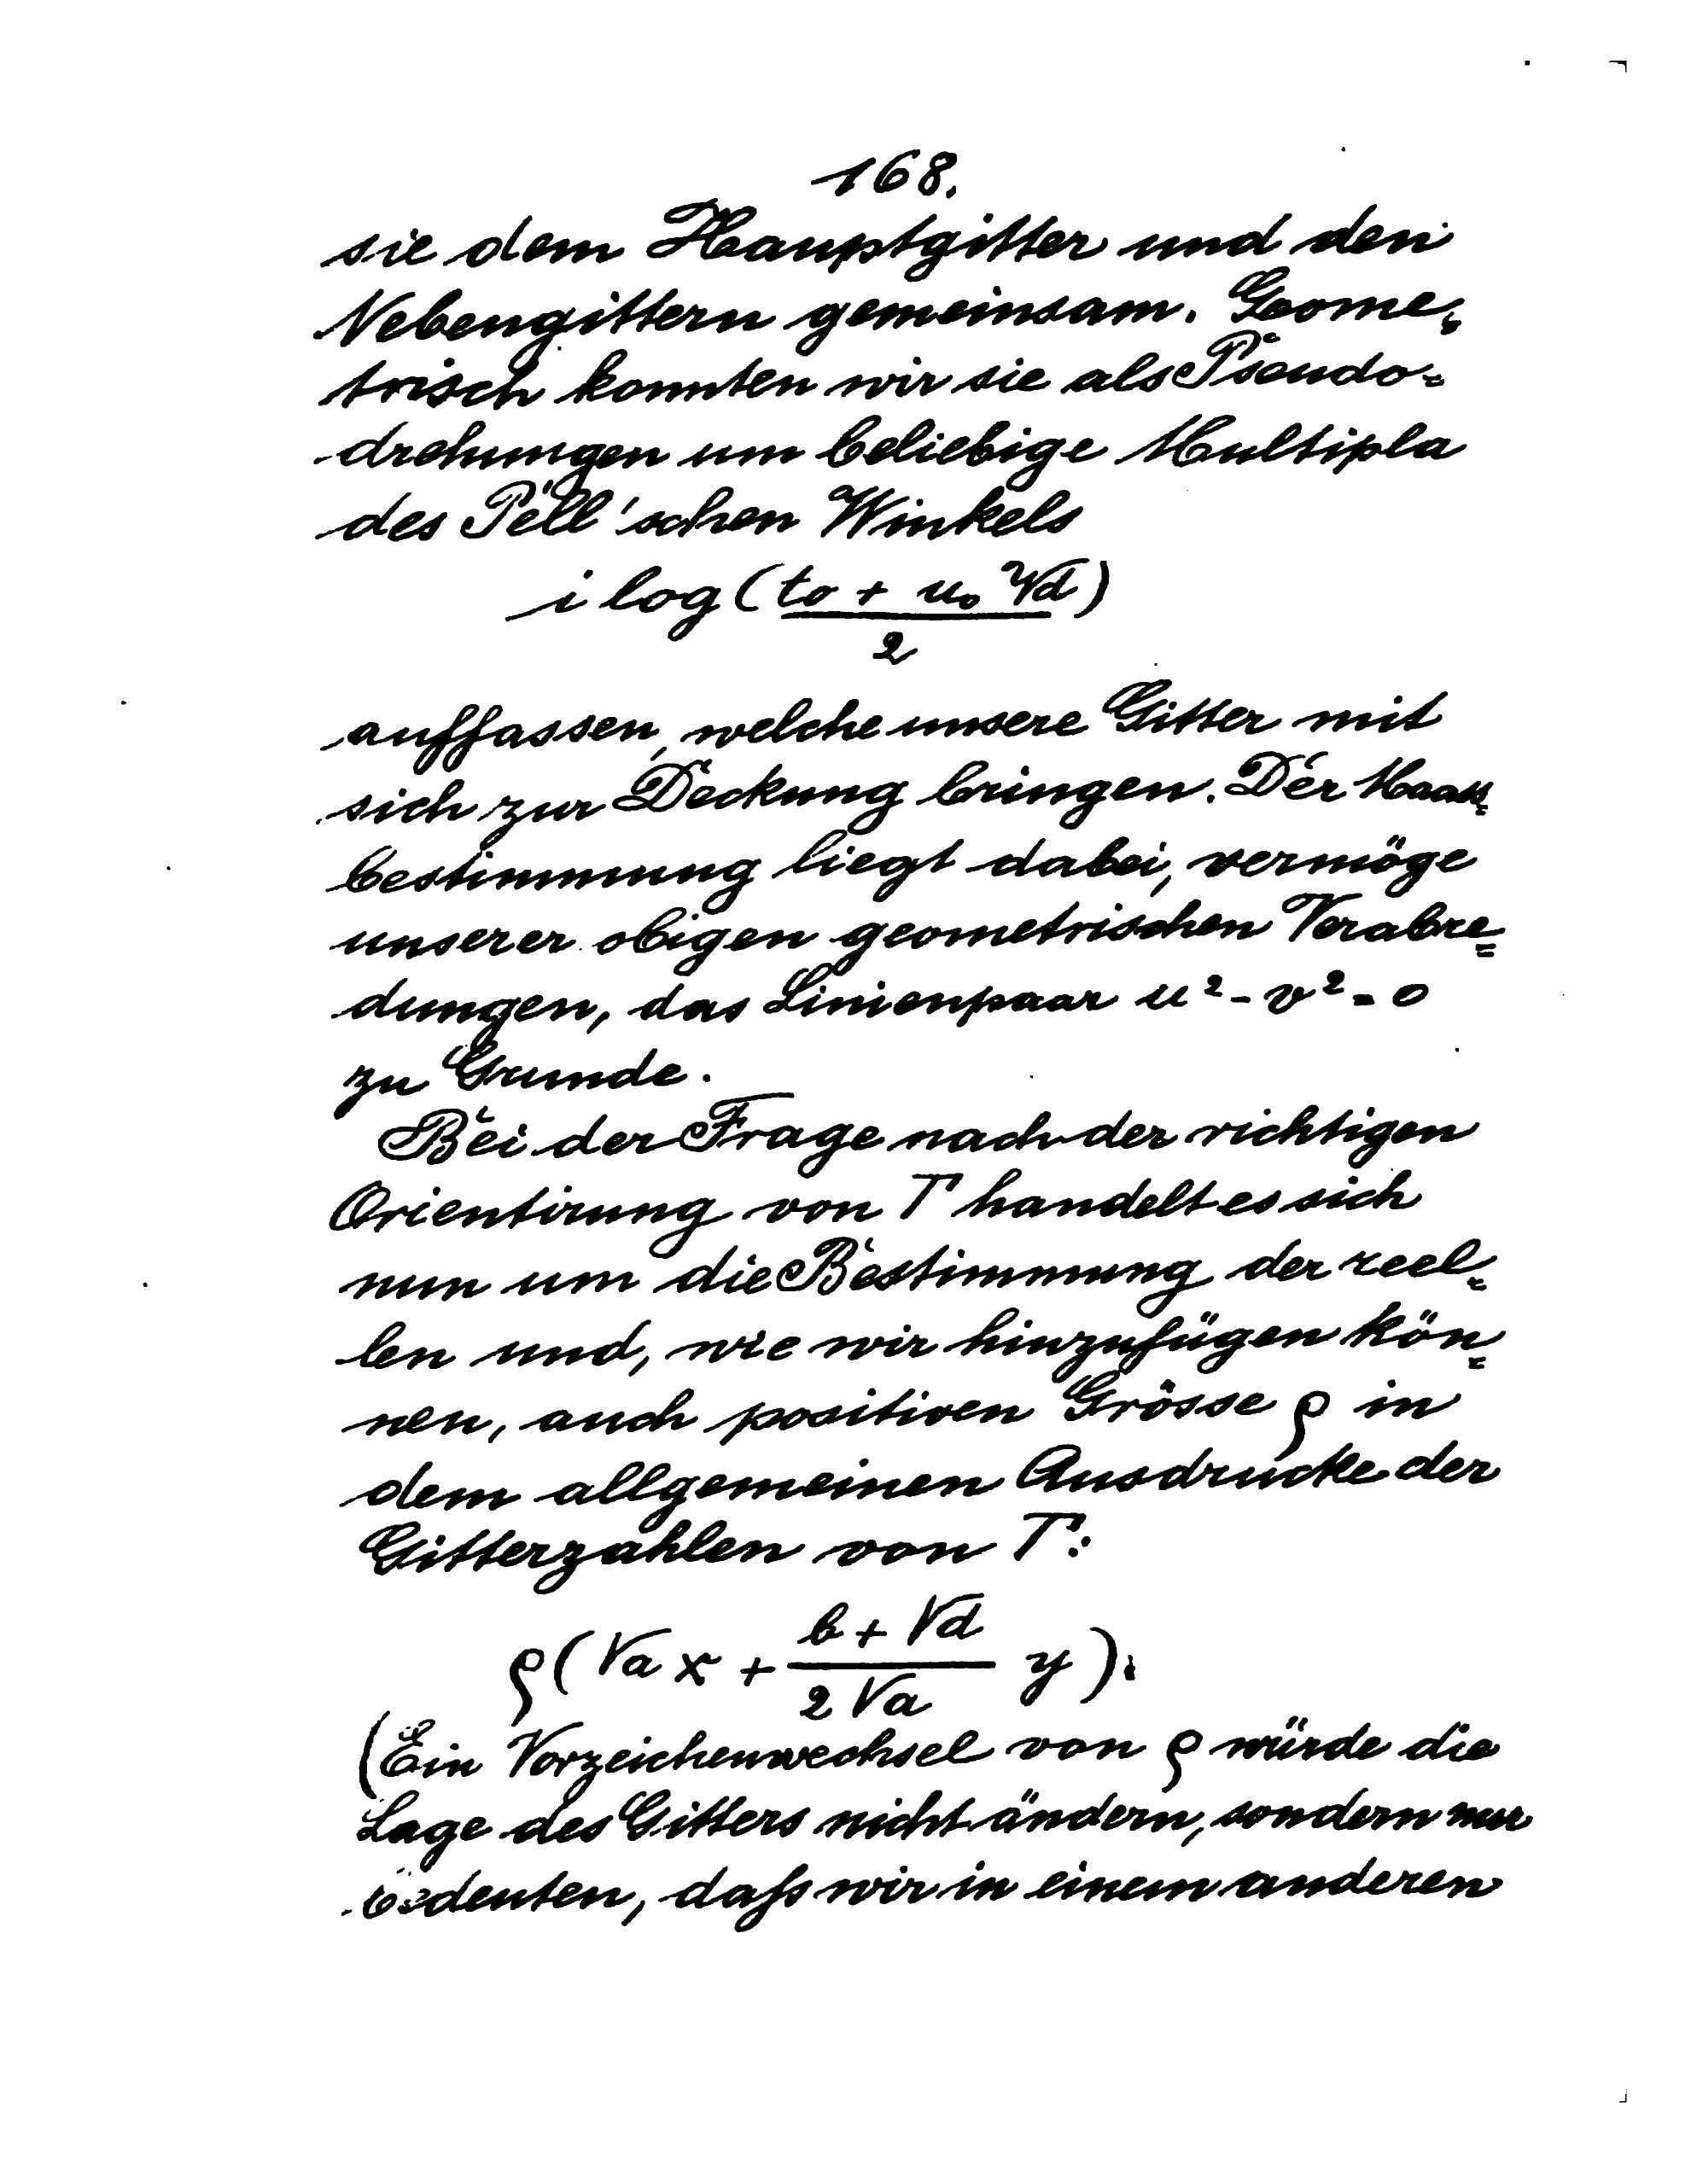 168.
sie dem Hauptgitter und den
Nebengittern gemeinsam. Geome-
trisch konnten wir sie als Pseudo-
drehungen um beliebige Multipla
des Pell'schen Winkels
i log (\frac{t_0 + u_0 \sqrt{d}}{2})
auffassen, welche unsere Gitter mit
sich zur Deckung bringen. Der Maass-
bestimmung liegt dabei, vermöge
unserer obigen geometrischen Verabre=
dungen, das Linienpaar u² - v² = 0
zu Grunde.
Bei der Frage nach der richtigen
Orientirung von T handelt es sich
nun um die Bestimmung der reel-
len und, wie wir hinzufügen kön=
nen, auch positiven Grösse ρ in
dem allgemeinen Ausdrucke der
Gitterzahlen von T:
ρ(√a x + \frac{b + √d}{2√a} y).
(Ein Vorzeichenwechsel von ρ würde die
Lage des Gitters nicht ändern, sondern nur
bedeuten, daß wir in einem anderen